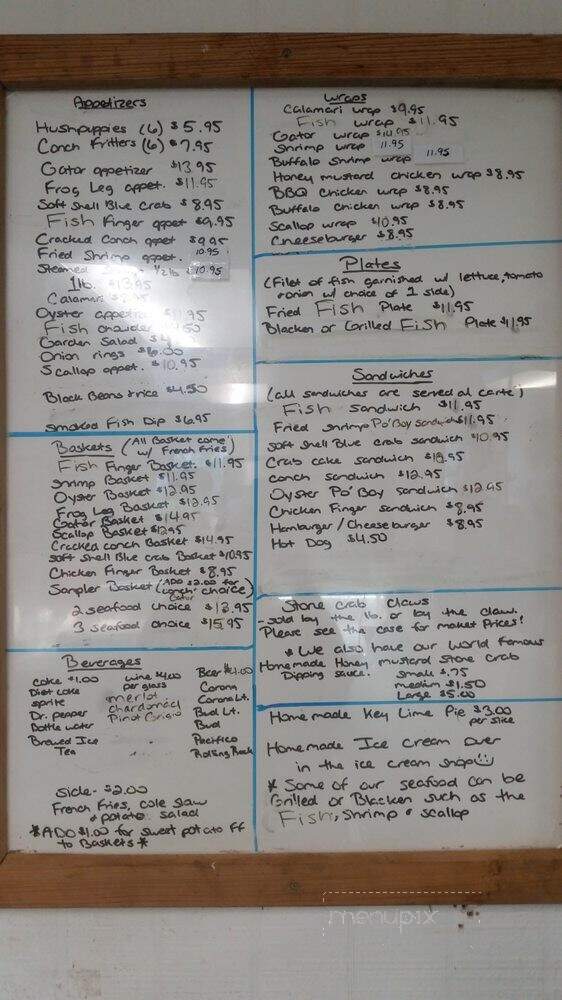 Appetizers
Hushpuppies (6) $5.95
Conch Fritters (6) $7.95
Gator appetizer $13.95
Frog Leg appet. $11.95
Soft Shell Blue Crab $8.95
Fish Finger appet $9.95
Cracked Conch appet $9.95
Fried Shrimp appet. 10.95
Steamed 1/2 lb $10.95
1lb.
Calamari
Oyster
Fish chowder
Garden Salad
Onion rings $6.00
Scallop appet. $10.95
Black Beans & rice $4.50
Smoked Fish Dip $6.95
Baskets (All Basket come w/ French Fries)
Fish Finger Basket. $11.95
Shrimp Basket $11.95
Oyster Basket $12.95
Frog Leg Basket $12.95
Gator Basket $14.95
Scallop Basket $12.95
Cracked conch Basket $14.95
Soft Shell Blue Crab Basket $10.95
Chicken Finger Basket $8.95
Sampler Basket (ADD $2.00 for conch, Gator choice)
2 seafood choice $13.95
3 seafood choice $15.95
Beverages
coke $1.00
Diet coke
sprite
Dr. pepper
Bottle water
Brewed Ice Tea
wine $4.00 per glass
merlot
chardonnay
Pinot Grigio
Beer $4.00
Corona
Corona Lt.
Bud Lt.
Bud
Pacifico
Rolling Rock
Side- $2.00
French Fries, cole slaw
& potato salad
*ADD $1.00 for sweet potato FF
to Baskets*
Wraps
Calamari wrap $9.95
Fish wrap $11.95
Gator wrap $14.95
Shrimp wrap 11.95
Buffalo Shrimp wrap 11.95
Honey mustard chicken wrap $8.95
BBQ Chicken wrap $8.95
Buffalo Chicken wrap $8.95
Scallop wrap $10.95
Cheeseburger $8.95
Plates
(Filet of fish garnished w/ lettuce, tomato
& onion w/ choice of 1 side)
Fried Fish Plate $11.95
Blacken or Grilled Fish Plate $11.95
Sandwiches
(all sandwiches are served al carte)
Fish sandwich $11.95
Fried Shrimp Po'Boy sandwich $11.95
Soft Shell Blue crab sandwich $10.95
Crab cake sandwich
conch sandwich $12.95
Oyster Po'Boy sandwich $12.95
Chicken Finger sandwich $8.95
Hamburger/Cheeseburger $8.95
Hot Dog $4.50
Stone crab claws
-sold by the lb. or by the claw.
Please see the case for market Prices!
*We also have our world famous
Homemade Honey mustard Stone Crab
Dipping sauce. Small $.75
medium $1.50
Large $5.00
Homemade Key Lime Pie $3.00
per slice
Homemade Ice cream over
in the ice cream shop
* Some of our seafood can be
Grilled or Blacken such as the
Fish, Shrimp & scallop
menupix